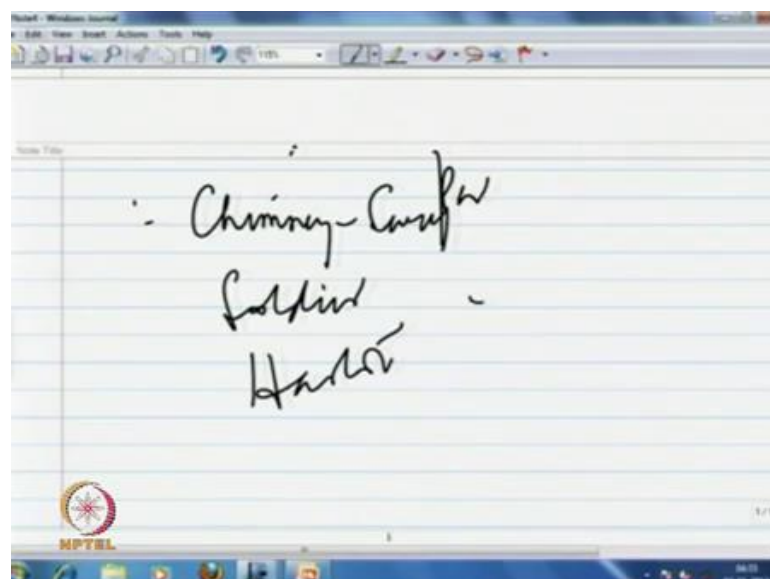 Note4 - Windows Journal
Edit View Insert Actions Tools Help
Note Title
Chimney-Sweeper
Soldier
Harlot
NPTEL